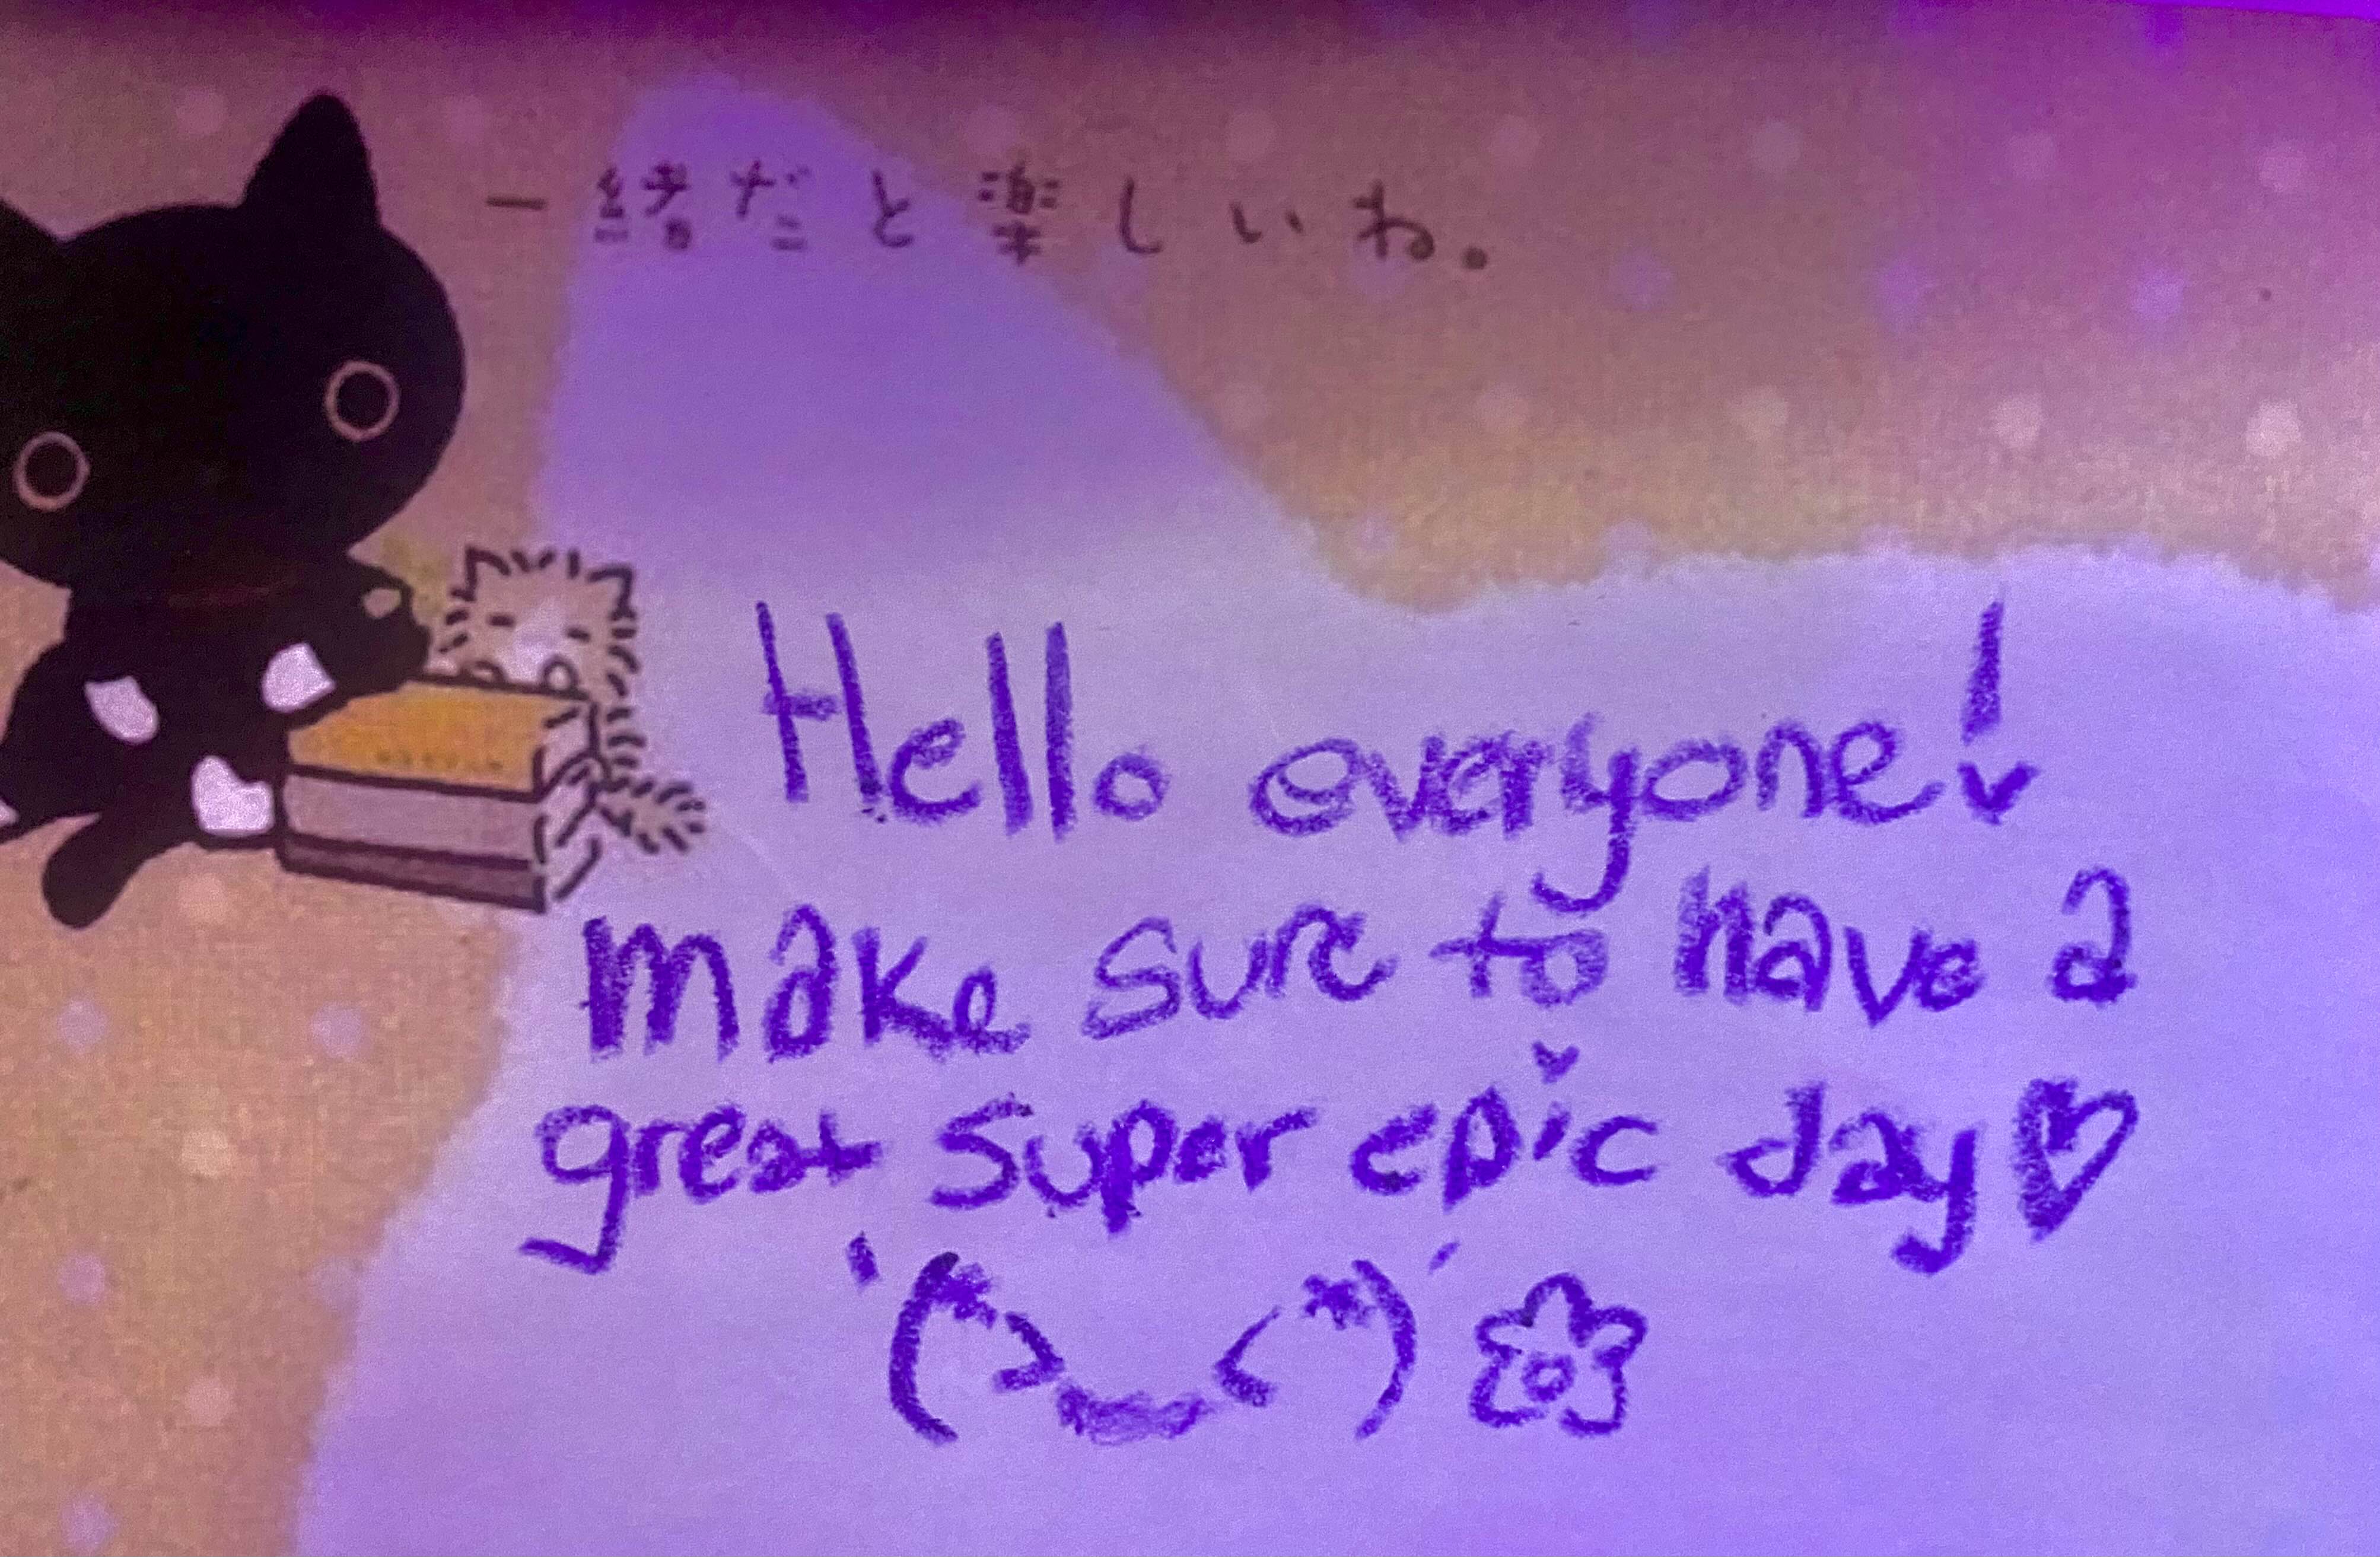 一緒だと楽しいね。
Hello everyone!
make sure to have a
great super epic day♡
'(*>‿<*)'